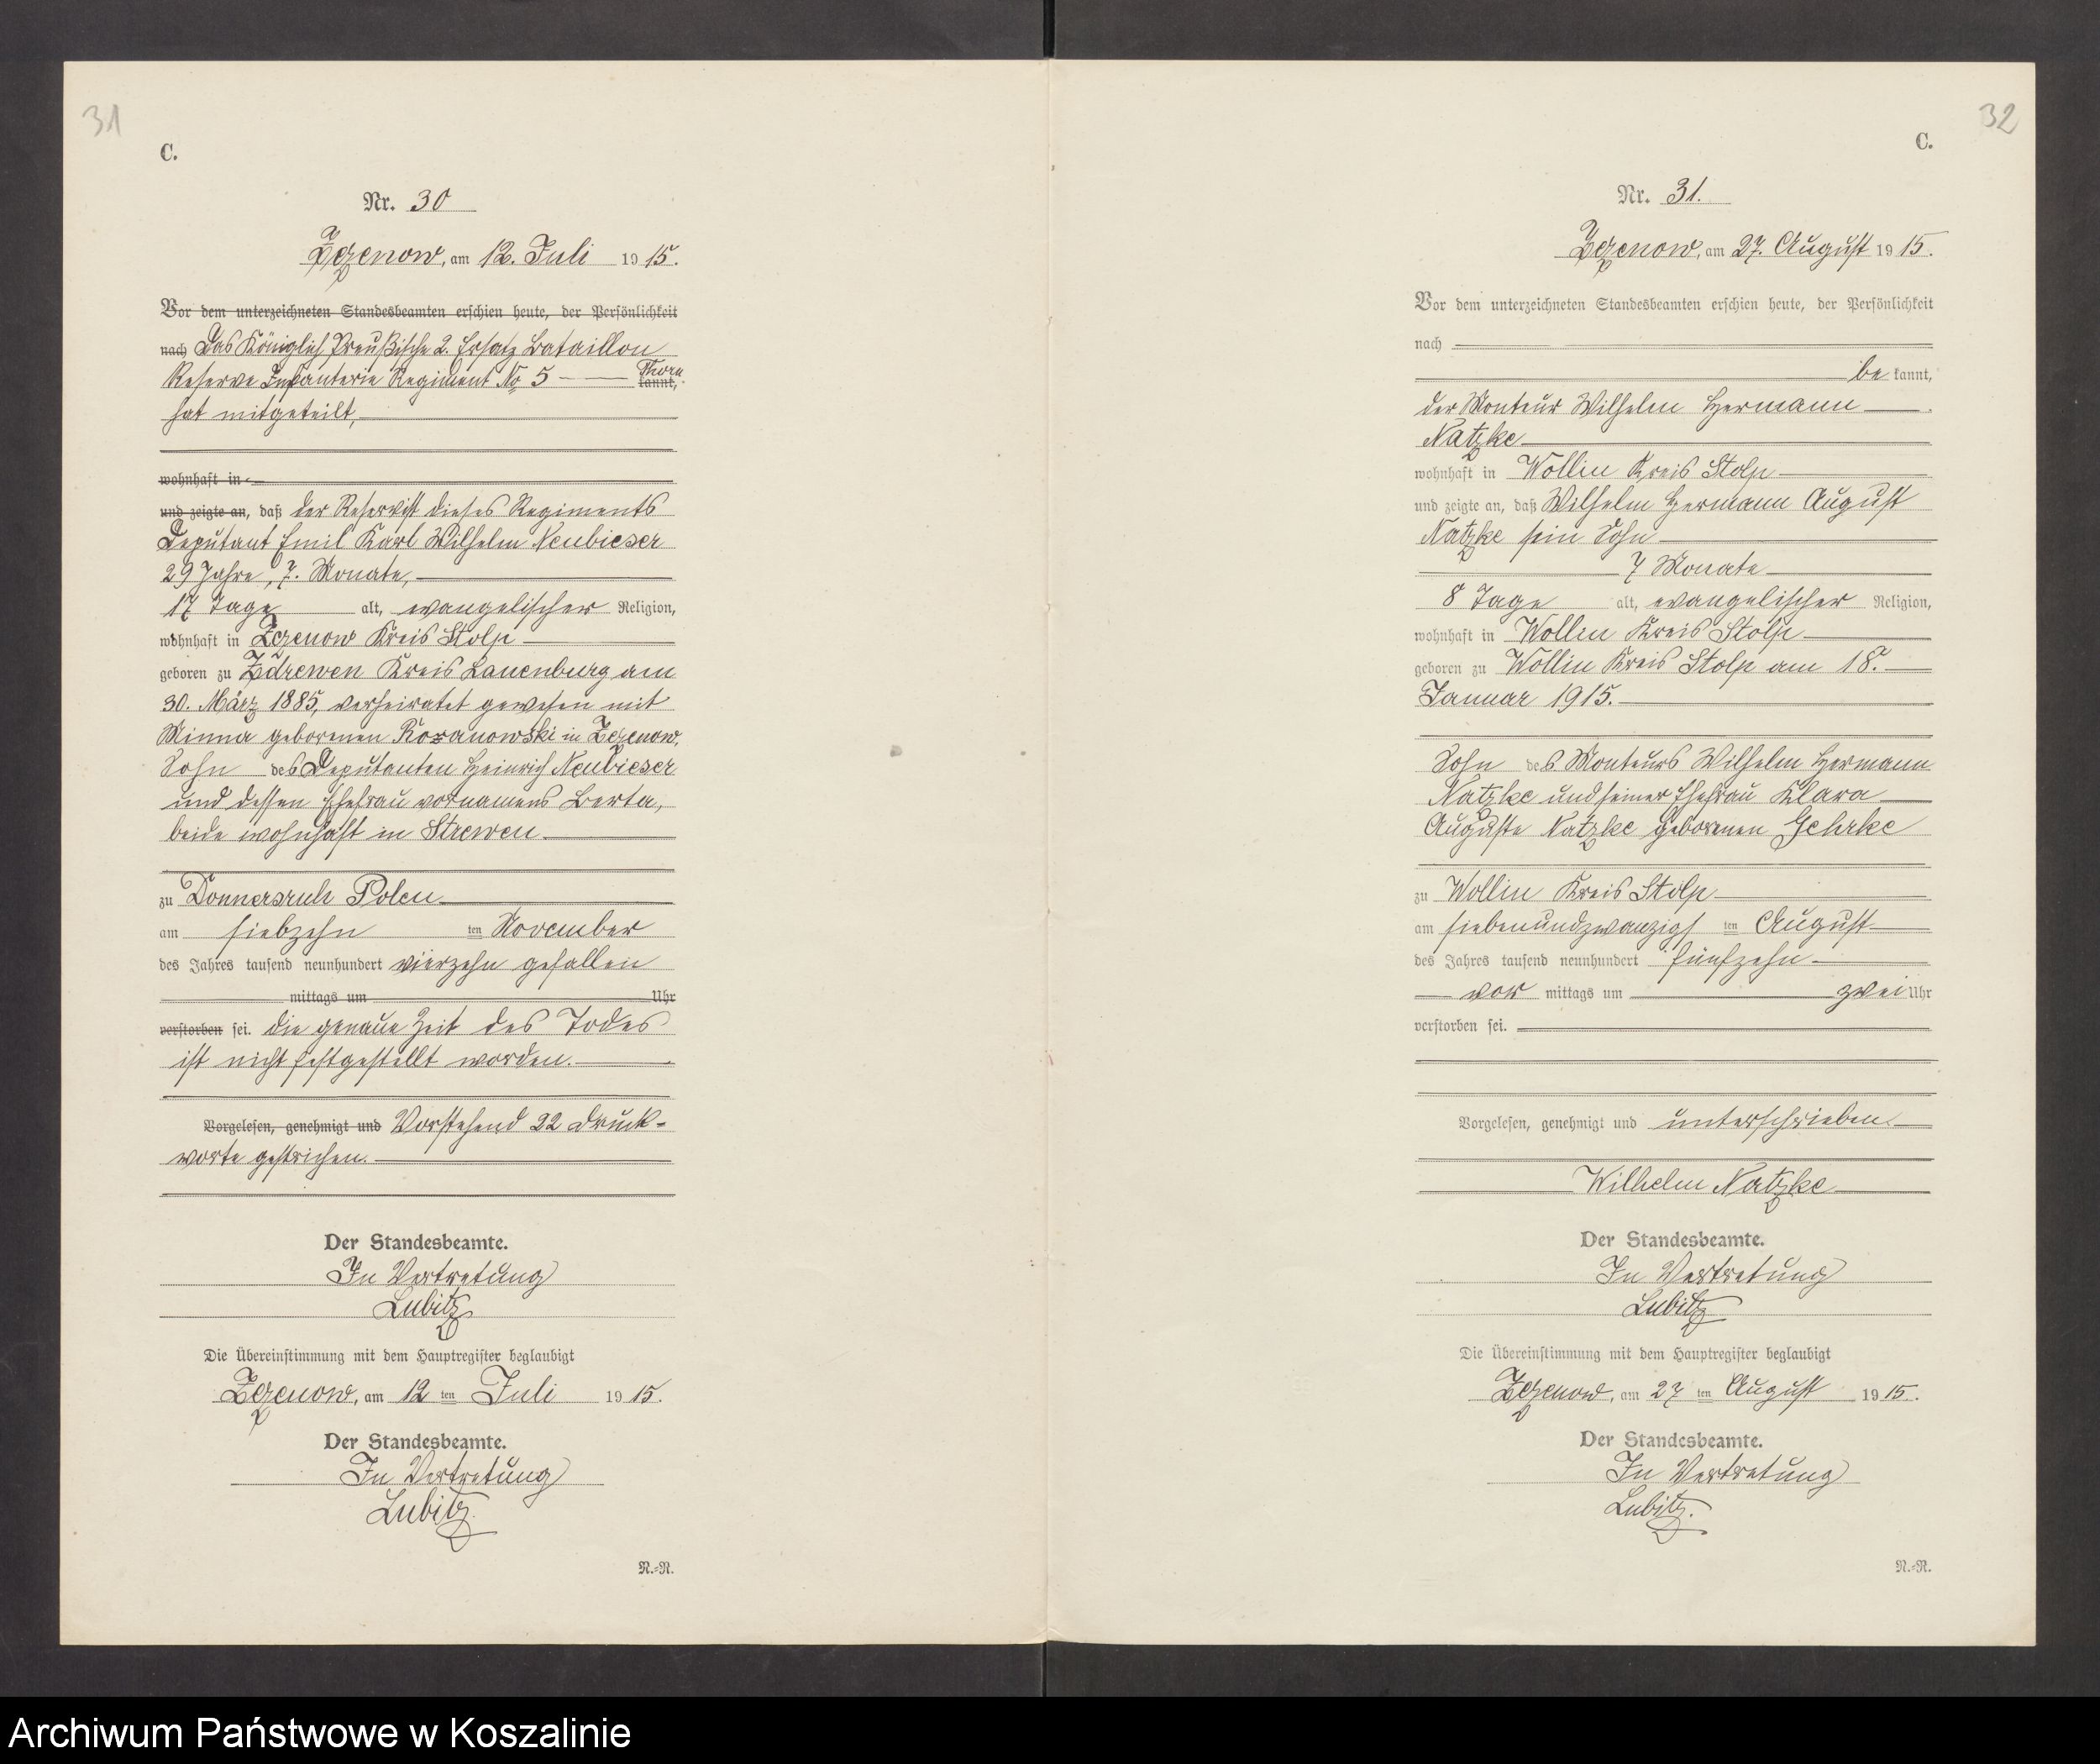 31
C.
Nr. 30
Zezenow, am 12. Juli 1915.
Vor dem unterzeichneten Standesbeamten erschien heute, der Persönlichkeit
nach Das Königlich Preußische 2. Ersatz Bataillon
Reserve Infanterie Regiment No 5 — Thorn
kannt,
hat mitgeteilt,
wohnhaft in
und zeigte an, daß der Reservist dieses Regiments
Deputant Emil Karl Wilhelm Neubieser
29 Jahre, 7. Monate,
17 Tage alt, evangelischer Religion,
wohnhaft in Zezenow Kreis Stolp
geboren zu Zdrewen Kreis Lauenburg am
30. März 1885, verheiratet gewesen mit
Minna geborenen in Zezenow,
Sohn des Deputanten Heinrich Neubieser
und dessen Ehefrau vornamens Berta,
beide wohnhaft in Strewen.
zu Donnersruh Polen
am siebzehn ten November
des Jahres tausend neunhundert vierzehn gefallen
mittags um Uhr
verstorben sei. die genaue Zeit des Todes
ist nicht festgestellt worden.
Vorgelesen, genehmigt und Vorstehend 22 Druck-
worte gestrichen.
Der Standesbeamte.
In Vertretung
Lubitz
Die Übereinstimmung mit dem Hauptregister beglaubigt
Zezenow, am 12 ten Juli 1915.
Der Standesbeamte.
In Vertretung
Lubitz.
N.=N.
32
C.
Nr. 31.
Zezenow, am 27. August 1915.
Vor dem unterzeichneten Standesbeamten erschien heute, der Persönlichkeit
nach
be kannt,
der Monteur Wilhelm Hermann
Natzke
wohnhaft in Wollin Kreis Stolp
und zeigte an, daß Wilhelm Hermann August
Natzke sein Sohn
7 Monate
8 Tage alt, evangelischer Religion,
wohnhaft in Wollin Kreis Stolp
geboren zu Wollin Kreis Stolp am 18.
Januar 1915.
Sohn des Monteurs Wilhelm Hermann
Natzke und seiner Ehefrau Klara
Auguste Natzke geborenen Gehrke
zu Wollin Kreis Stolp
am siebenundzwanzigs ten August
des Jahres tausend neunhundert fünfzehn
vor mittags um zwei Uhr
verstorben sei.
Vorgelesen, genehmigt und unterschrieben
Wilhelm Natzke
Der Standesbeamte.
In Vertretung
Lubitz
Die Übereinstimmung mit dem Hauptregister beglaubigt
Zezenow, am 27 ten August 1915.
Der Standesbeamte.
In Vertretung
Lubitz.
N.=N.
Archiwum Państwowe w Koszalinie